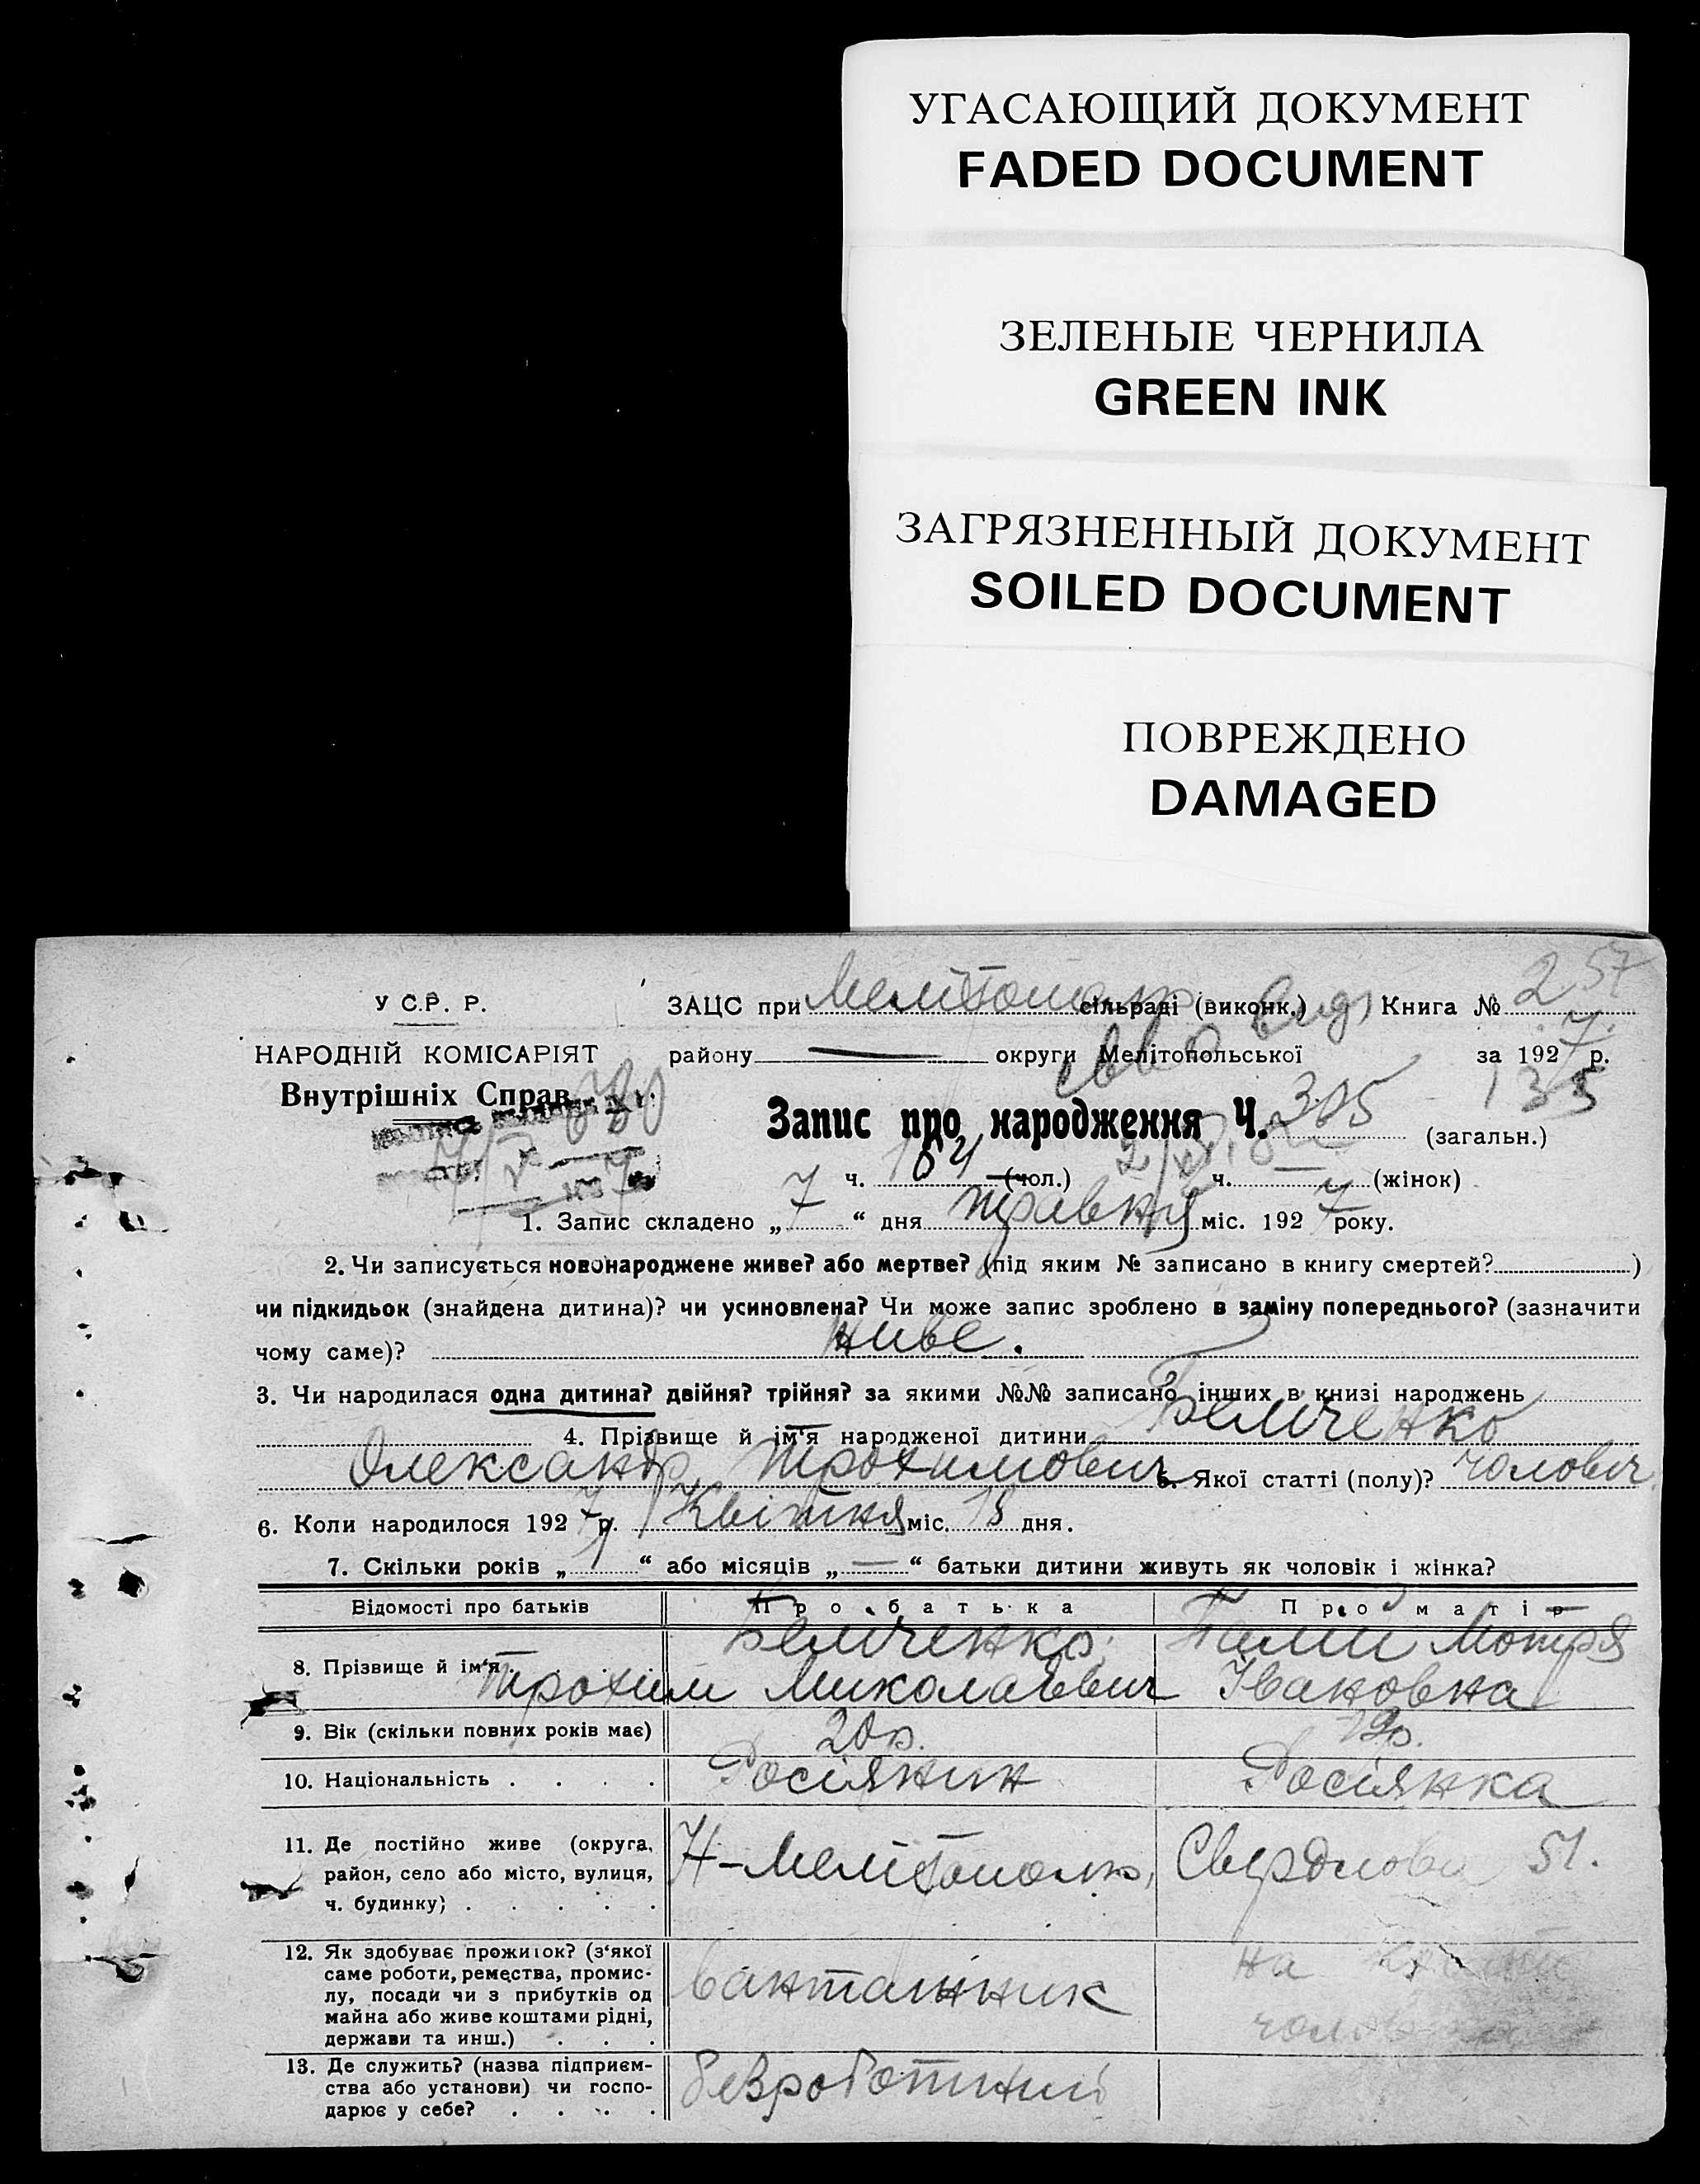 УГАСАЮЩИЙ ДОКУМЕНТ
FADED DOCUMENT
ЗЕЛЕНЫЕ ЧЕРНИЛА
GREEN INK
ЗАГРЯЗНЕННЫЙ ДОКУМЕНТ
SOILED DOCUMENT
ПОВРЕЖДЕНО
DAMAGED
У С.Р. Р.
НАРОДНІЙ КОМІСАРІЯТ
Внутрішніх Справ
257
ЗАЦС при сільраді (виконк.) Книга №
району — округи Мелітопольської за 1927 р.
135
Запис про народження Ч. 305 (загальн.)
ч. 164 (чол.) ч. — (жінок)
1. Запис складено „7“ дня травня міс. 1927 року.
2. Чи записується новонароджене живе? або мертве? (під яким № записано в книгу смертей? )
чи підкидьок (знайдена дитина)? чи усиновлена? Чи може запис зроблено в заміну попереднього? (зазначити
чому саме)? живе.
3. Чи народилася одна дитина? двійня? трійня? за якими №№ записано інших в книзі народжень
4. Прізвище й ім‘я народженої дитини Бемченко
Олександр Трохимович 5. Якої статті (полу)? чолович
6. Коли народилося 1927 р. Квітня міс. 18 дня.
7. Скільки років „1“ або місяців „—“ батьки дитини живуть як чоловік і жінка?
Відомості про батьків Про батька Про матір
8. Прізвище й ім‘я Бемченко Мотря
Трохим Миколаєвич Івановна
9. Вік (скільки повних років має) 20 р. 19 р.
10. Національність Росіянин Росіянка
11. Де постійно живе (округа, район, село або місто, вулиця, ч. будинку) Н-Мелітополь, Свердлова 51.
12. Як здобуває прожиток? (з‘якої саме роботи, ремества, промислу, посади чи з прибутків од майна або живе коштами рідні, держави та инш.) вантажник на чоловіка
13. Де служить? (назва підприємства або установи) чи господарює у себе? безроботний